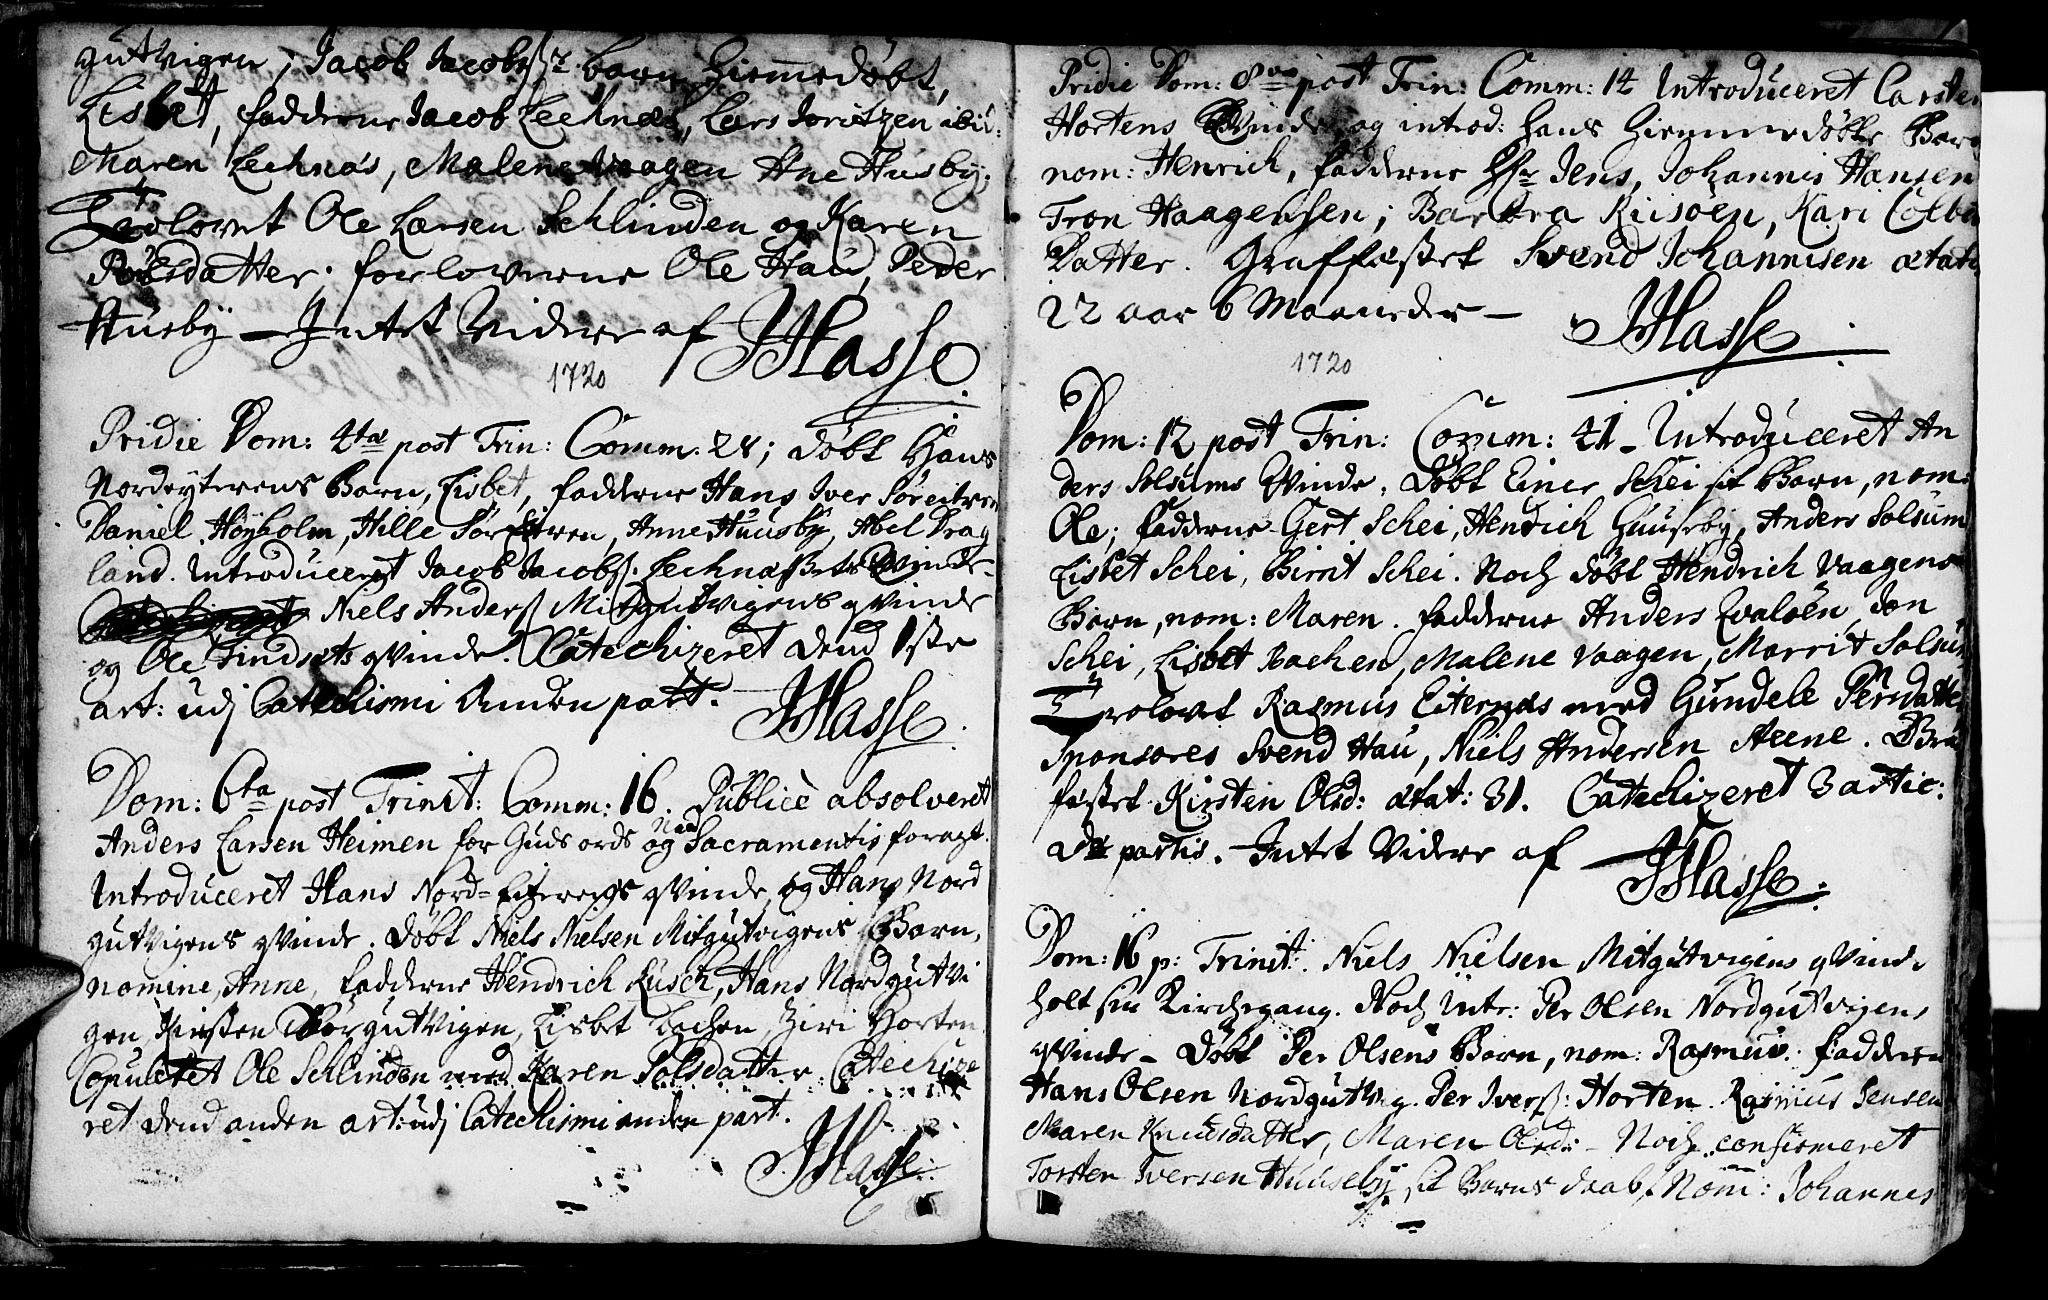 gutvigen, Jacob Jacobsß: barn hiemmedøbt,
Lisbet, fadderne Jacob Lechnæs, Lars Joritzen ibid:
Maren Lechnæs, Malene Vaagen Ane Husby,
Trolovet Ole Larsen Schlinden og Karen
Polsdatter. forloverne Ole Hau, Peder
Husby – Intet Videre af JHasse
1720
Pridie Dom: 4ta post Trin: Comm: 28; døbt Hans
Nordeyterens Barn, Lisbet, fadderne Hans Iver Søreitren
Daniel Høyholm, Hille Søreitren, Anne Huusby, Abel Drag
land. Introduceret Jacob Jacobß: Lechnæsets Qvinde
Niels Anderß Mitgutvigens qvinde
og Ole Tindsets qvinde. Catechizeret dend 1ste
art: udj Catechismi Anden part. JHasse
Dom: 6ta post Trinit: Comm: 16. Publicè absolveret
Anders Larsen Heimen for Guds ords og Sacramentis foragt.
Introduceret Hans Nord-Eiterens qvinde, og Hans Nord
gutvigens qvinde. døbt Niels Nielsen Mitgutvigens Barn,
nomine, Anne, fadderne Hendrich Kusch, Hans Nordgutvi
gen, Kirsten Sørgutvigen, Lisbet Bachen, Ziri Horten
Copuleret Ole Schlinden med Karen Polsdatter. Catechize
ret dend anden art: udj Catechismi anden part.
JHasse
Pridie Dom: 8va post Trin: Comm: 14 Introduceret Carsten
Hortens Qvinde, og introd: hans hiemmedøbte Barn
nom: Henrich, fadderne Hr Jens, Johannis Hansen
Tron Haagensen; Barbra Riisøen, Kari Colbens
Datter. Graffæstet Svend Johannisen ætatis
22 aar 6 Maaneder – JHasse
1720
Dom: 12 post Trin: Comm: 41 – Introduceret An
ders Solsums Qvinde. Døbt Einer Schei sit Barn, nom:
Ole; fadderne Gert Schei, Hendrich Huuseby, Anders Solsum
Lisbet Schei, Birrit Schei. Noch døbt Hendrich Vaagens
Barn, nom: Maren. fadderne Anders Evaløen, Jon
Schei, Lisbet Bachen, Malene Vaagen, Marrit Solsum
Trolovet Rasmus Eiternæs med Gundele Persdatter
Sponsores Svend Hau, Niels Andersen Aune. Gra
fæstet Kirsten Olsd: ætat: 31. Catechizeret 3 artic:
2dæ partis. Intet Videre af JHasse
Dom: 16 p: Trinit: Niels Nielsen Mitgutvigens qvinde
holt sin Kirchegang. Noch intr: Per Olsen Nordgutvigens
qvinde – Døbt Per Olsens Barn, nom: Rasmus. Faddere
Hans Olsen Nordgutvig. Per Iverß: Horten. Rasmus Jensen
Maren Knudsdatter, Maren Olsd: – Noch confirmeret
Torsten Iversen Huuseby sit Barns daab, Nom: Johannes